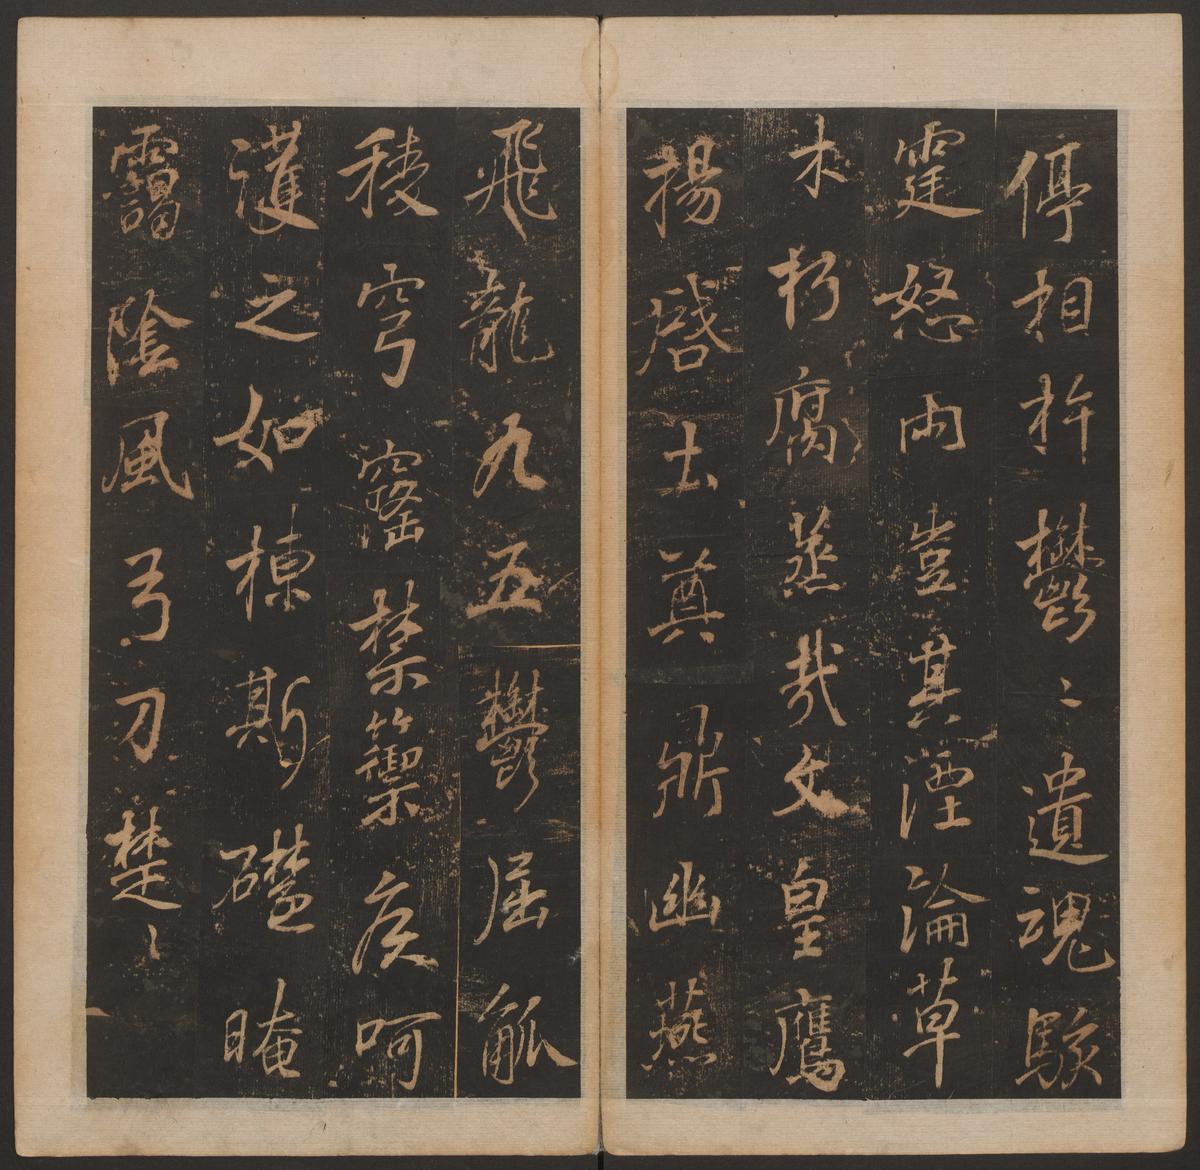 停相杵鬱〻遺魂駭
霆怒雨豈其湮淪草
木朽腐蒸哉文皇鷹
揚啓土奠鼎幽燕
飛龍九五鬱屈觚
稜穹窿禁籞疾呵
護之如棟斯礎晻
靄陰風弓刀楚〻